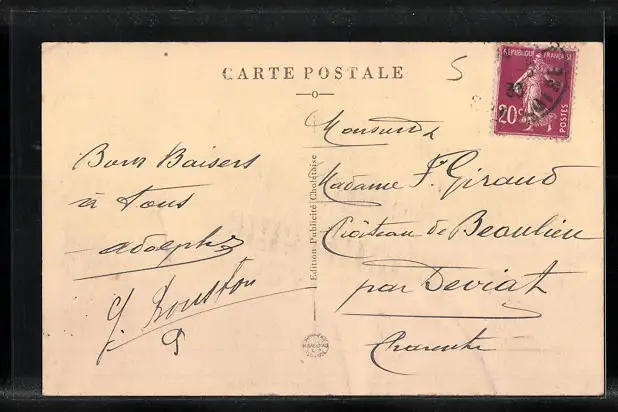 CARTE POSTALE
5
REPUBLIQUE FRANÇAISE
20c
POSTES
Bons Baisers
à tous
Adolphe
Edition Publicité Choletaise
Monsieur &
Madame F. Giraud
Château de Beaulieu
par Deviat
Charente